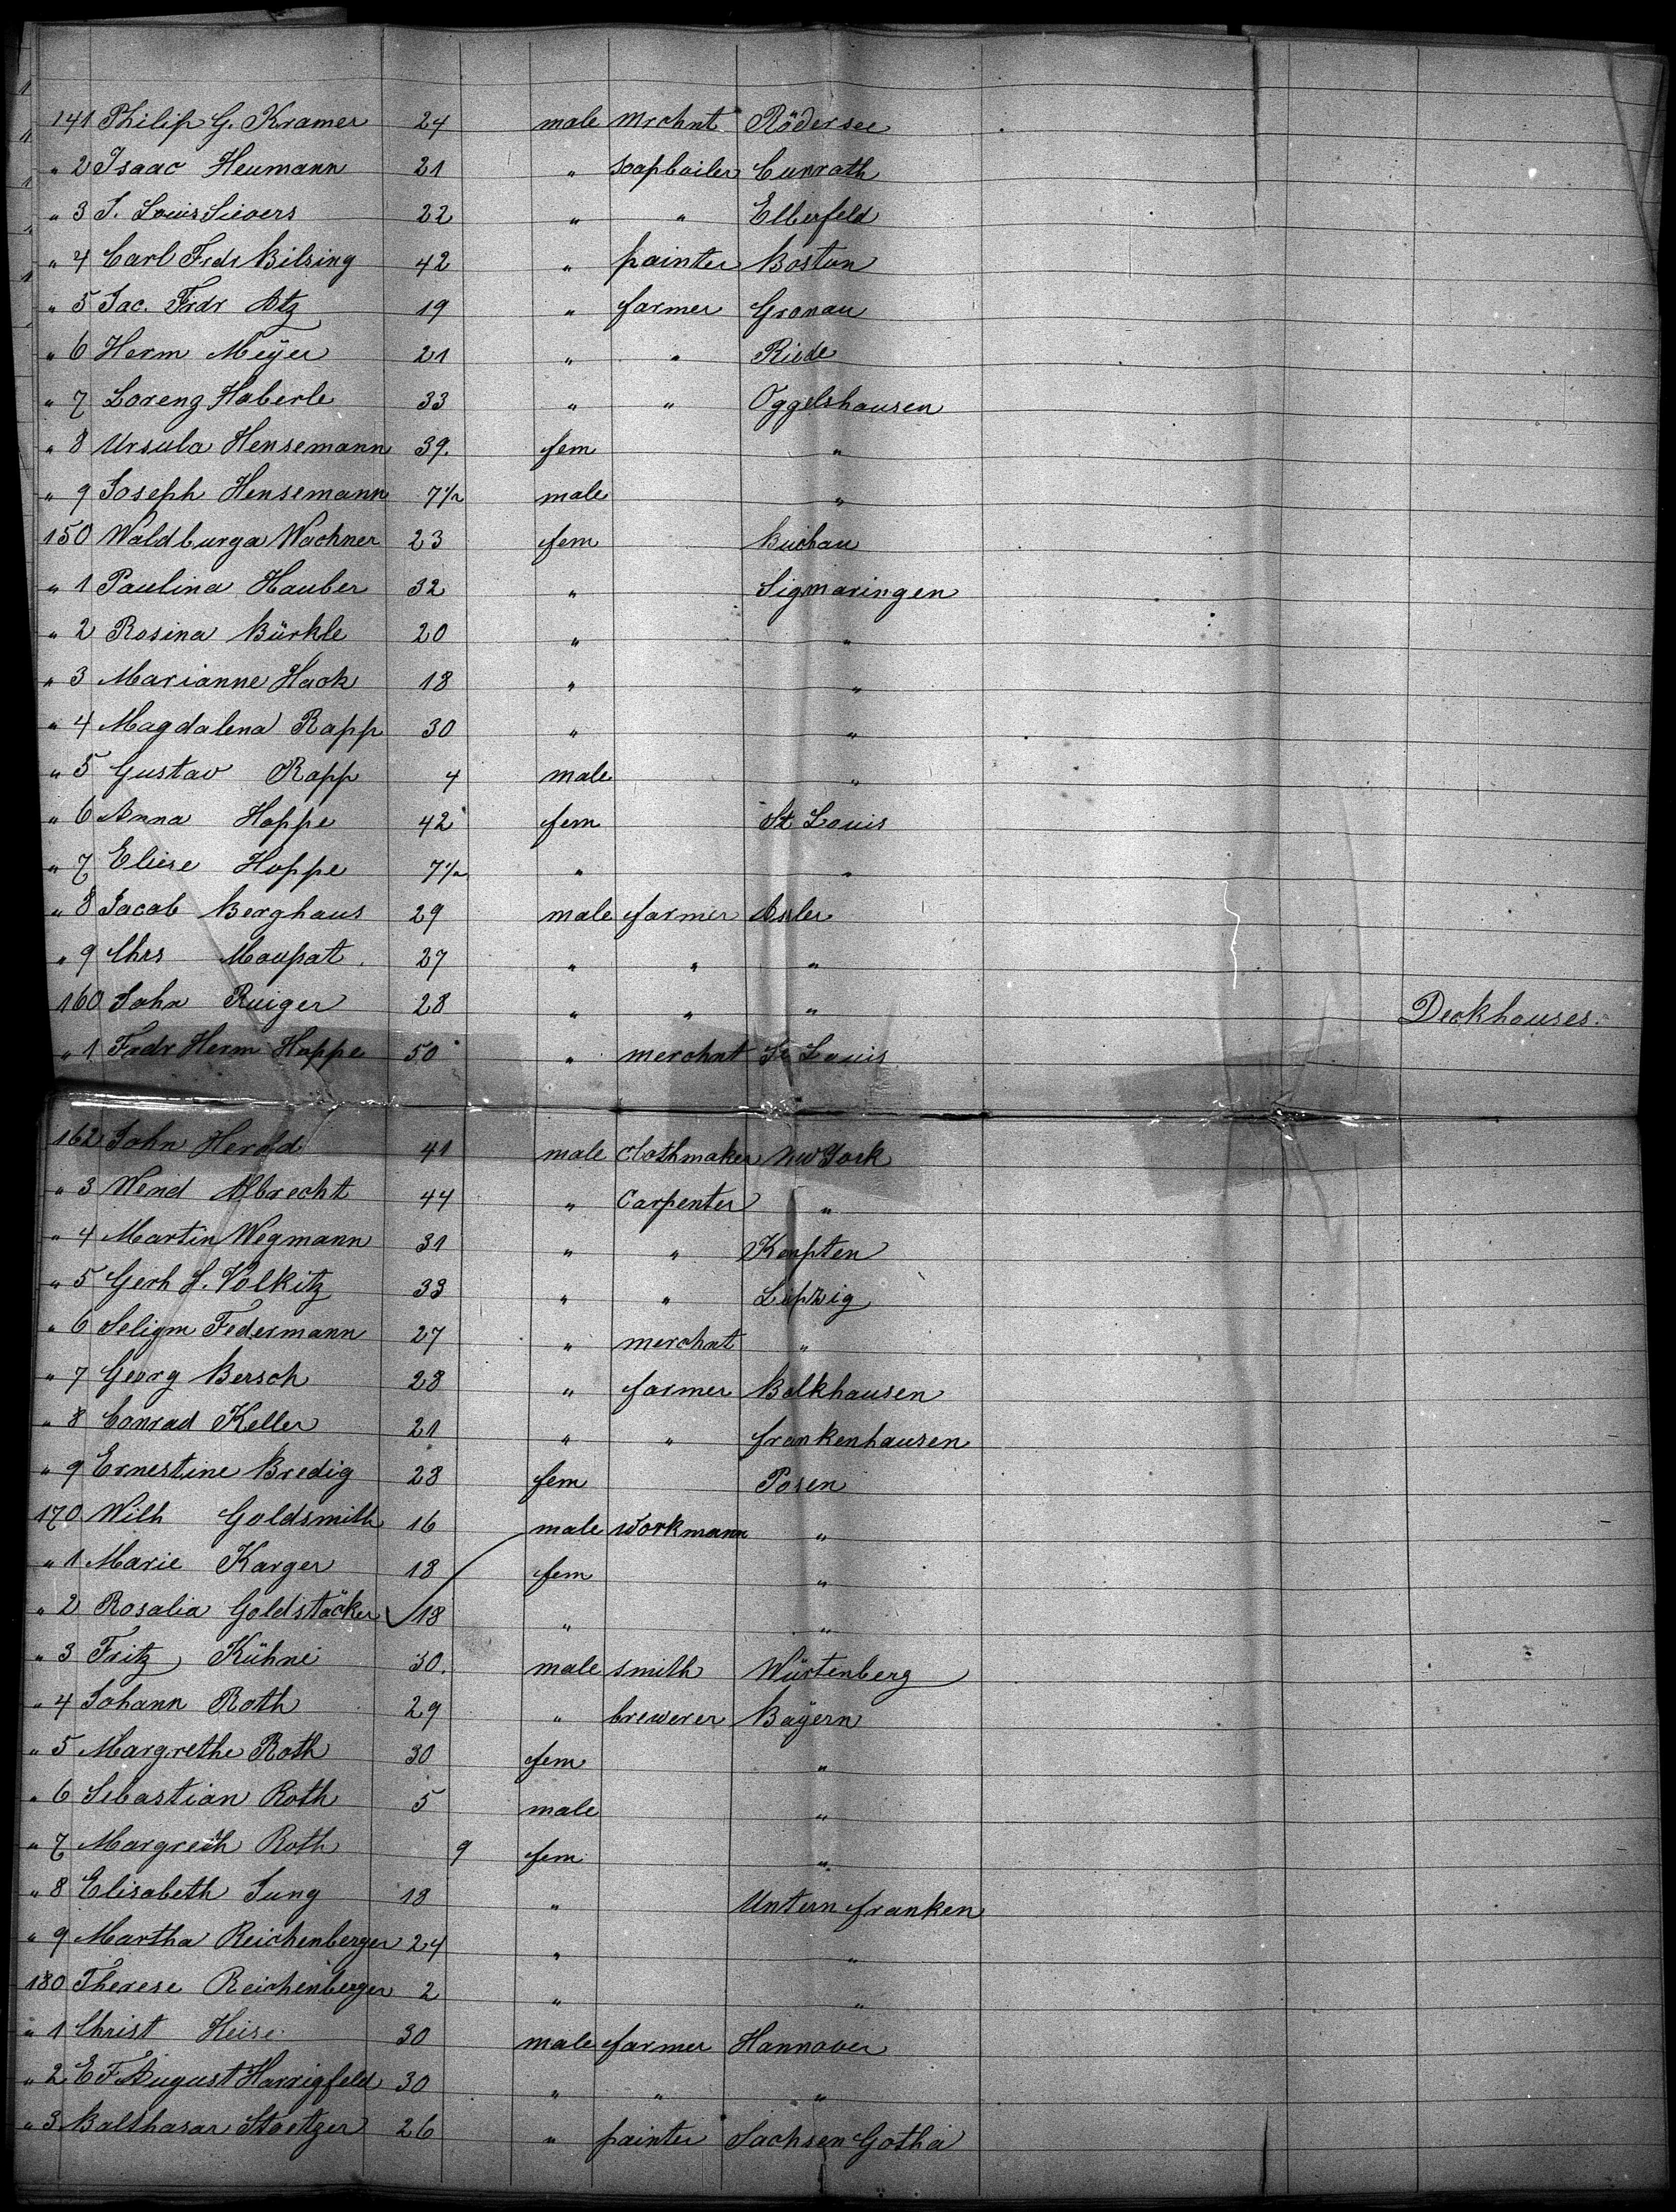 141 Philip G. Kramer 24 male Mrchnt Rödersee
" 2 Isaac Heumann 21 " soapboiler Cunrath
" 3 J. Louis Sievers 22 " " Elberfeld
" 4 Carl Frdr Bilsing 42 " painter Boston
" 5 Jac. Frdr Atz 19 " farmer Gronau
" 6 Herm Meÿer 21 " " Riede
" 7 Lorenz Haberle 33 " " Oggelshausen
" 8 Ursula Hensemann 39. fem "
" 9 Joseph Hensemann 7½ male "
150 Waldburga Wachner 23 fem Buchau
" 1 Paulina Hauber 32 " Sigmaringen
" 2 Rosina Bürkle 20 " "
" 3 Marianne Hack 18 " "
" 4 Magdalena Rapp 30 " "
" 5 Gustav Rapp 4 male "
" 6 Anna Hoppe 42 fem St Louis
" 7 Eliese Hoppe 7½ " "
" 8 Jacob Berghaus 29 male farmer Asler
" 9 Chrs Maupat 27 " " "
160 John Ruiger 28 " " " Deckhouses.
" 1 Frdr Herm Hoppe 50 " merchnt St Louis
162 John Herold 41 male clothmaker New York
" 3 Wend Albrecht 44 " Carpenter "
" 4 Martin Wegmann 31 " " Kempten
" 5 Gerh J. Volkitz 33 " " Leipzig
" 6 Seligm Federmann 27 " merchnt "
" 7 Georg Bersch 28 " farmer Balkhausen
" 8 Conrad Keller 21 " " frankenhausen
" 9 Ernestine Bredig 28 fem Posen
170 Wilh Goldsmith 16 male Workmann "
" 1 Marie Karger 18 fem "
" 2 Rosalia Goldstäcker 18 " "
" 3 Fritz Kühne 30. male smith Würtenberg
" 4 Johann Roth 29 " brewerer Baÿern
" 5 Margrethe Roth 30 fem "
" 6 Sebastian Roth 5 male "
" 7 Margreth Roth 9 fem "
" 8 Elisabeth Jung 18 " Untern franken
" 9 Martha Reichenberger 24 " "
180 Therese Reichenberger 2 " "
" 1 Christ Heise 30 male farmer Hannover
" 2 E F August Harrigfeld 30 " " "
" 3 Balthasar Stoetzer 26 " painter Sachsen Gotha